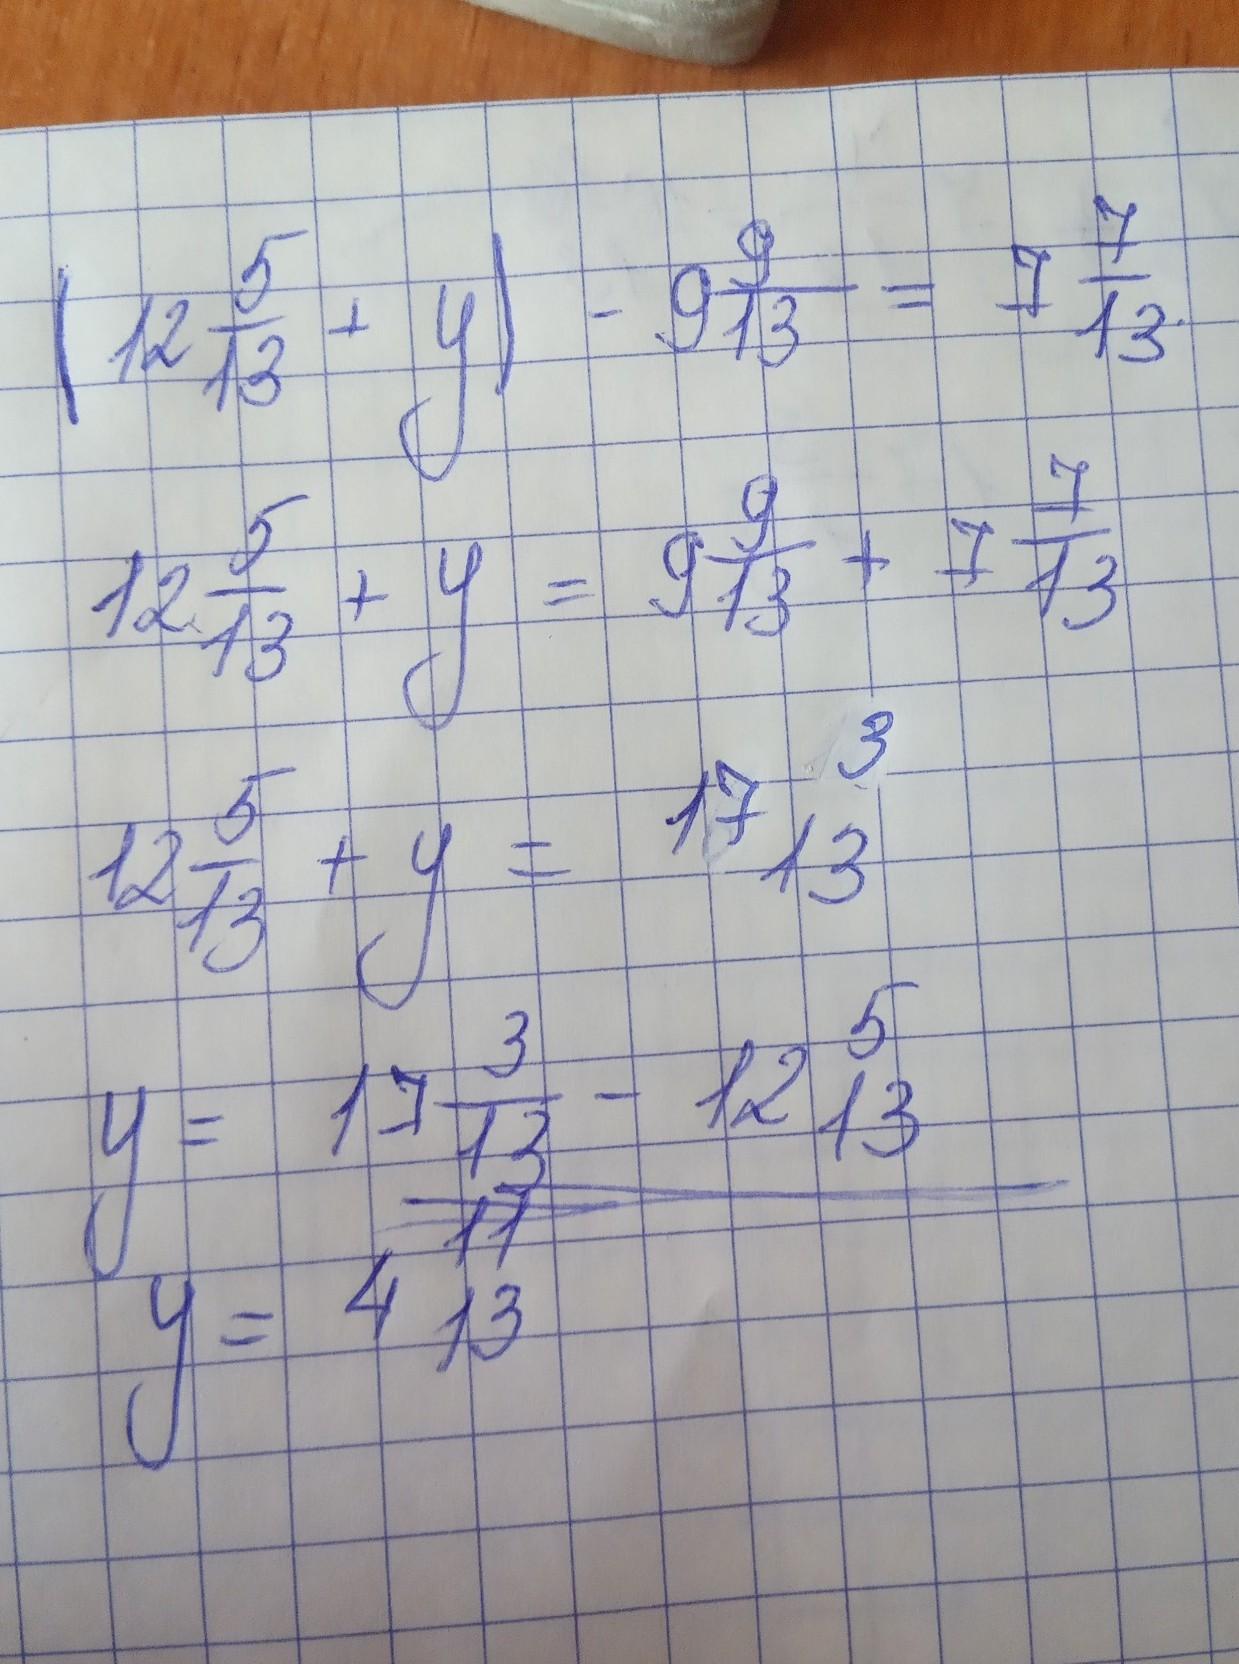 (12 5/13 + y) - 9 9/13 = 7 7/13
12 5/13 + y = 9 9/13 + 7 7/13
12 5/13 + y = 17 3/13
y = 17 3/13 - 12 5/13
y = 4 11/13